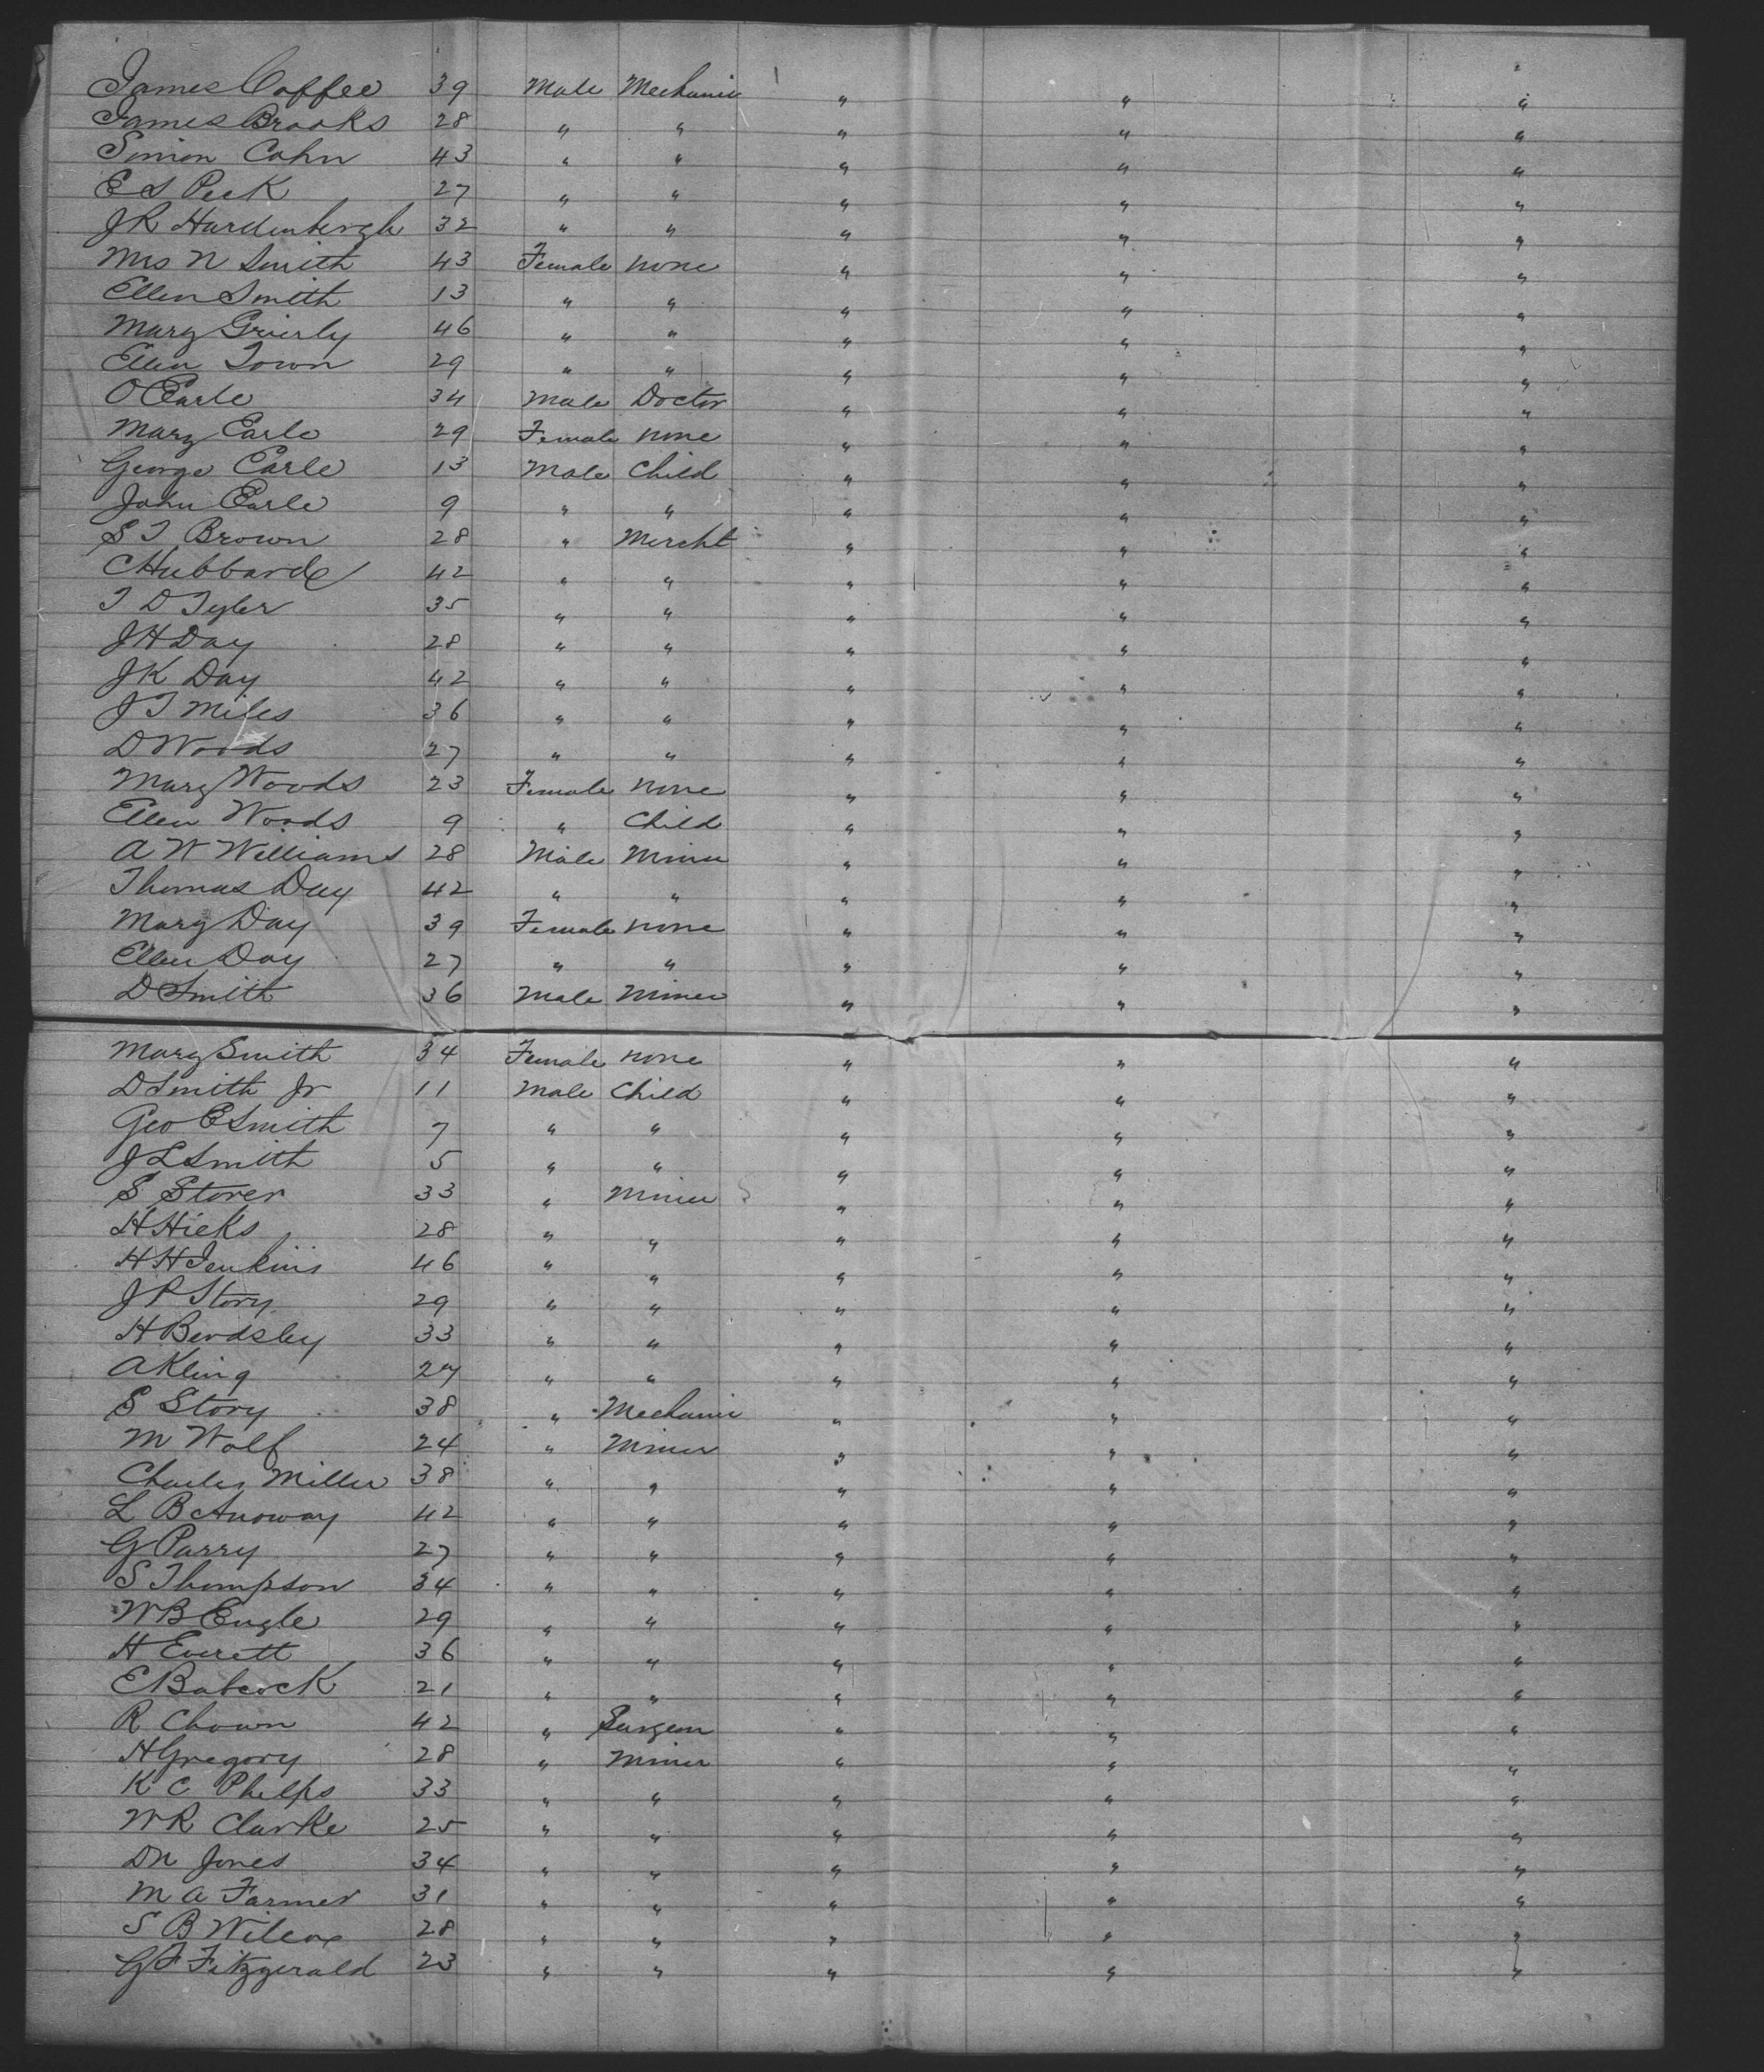 James Coffee 39 Male Mechanic " " "
James Brooks 28 " " " " "
Simon Cohn 43 " " " " "
E S Peck 27 " " " " "
J R Hardenbergh 32 " " " " "
Mrs N Smith 43 Female none " " "
Ellen Smith 13 " " " " "
Mary Grierly 46 " " " " "
Ellen Town 29 " " " " "
O Earle 34 Male Doctor " " "
Mary Earle 29 Female none " " "
George Earle 13 Male Child " " "
John Earle 9 " " " " "
S T Brown 28 " Mercht " " "
C Hubbard 42 " " " " "
T D Tyler 35 " " " " "
J H Day 28 " " " " "
J K Day 42 " " " " "
J T Miles 36 " " " " "
D Woods 27 " " " " "
Mary Woods 23 Female none " " "
Ellen Woods 9 " Child " " "
A W Williams 28 Male Miner " " "
Thomas Day 42 " " " " "
Mary Day 39 Female none " " "
Ellen Day 27 " " " " "
D Smith 36 Male Miner " " "
Mary Smith 34 Female none " " "
D Smith Jr 11 Male Child " " "
Geo E Smith 7 " " " " "
J L Smith 5 " " " " "
S Storer 33 " Miner " " "
H Hicks 28 " " " " "
H H Jenkins 46 " " " " "
J P Story 29 " " " " "
H Berdsley 33 " " " " "
A Kling 27 " " " " "
S Story 38 " Mechanic " " "
M Wolf 24 " Miner " " "
Charles Miller 38 " " " " "
L B 42 " " " " "
G Parry 27 " " " " "
S Thompson 34 " " " " "
W B Engle 29 " " " " "
H Everett 36 " " " " "
E Babcock 21 " " " " "
R Chown 42 " Surgeon " " "
H Gregory 28 " Miner " " "
K C Phelps 33 " " " " "
W R Clarke 25 " " " " "
D N Jones 34 " " " " "
M A Farmer 31 " " " " "
S B Wilcox 28 " " " " "
G F Fitzgerald 23 " " " " "